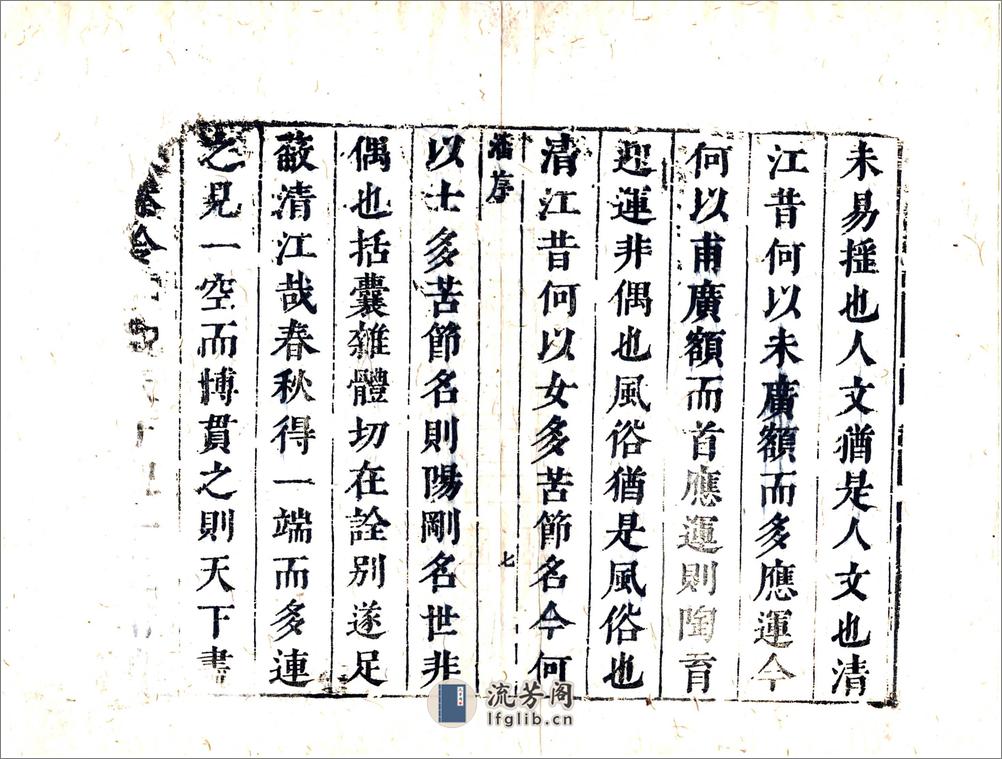 未易揺也人文猶是人文也清
江昔何以未廣額而多應運今
何以甫廣額而首應運則陶育
迎運非偶也風俗猶是風俗也
清江昔何以女多苦節名今何
潘序
七
以士多苦節名則陽剛名世非
偶也括囊雜體切在詮别遂足
蔽清江哉春秋得一端而多連
之見一空而博貫之則天下書
流芳阁
lfglib.cn